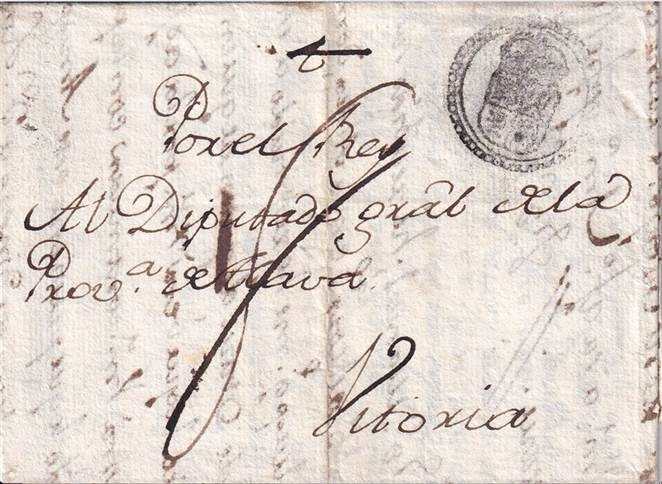 Por el Rey
Al Diputado grãl de la
Prov.ª de Alava
Vitoria